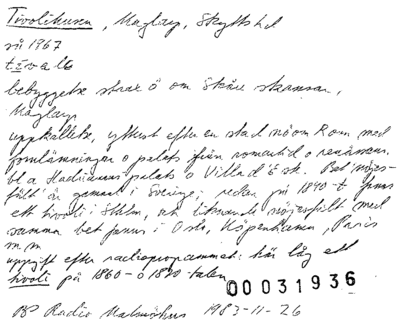 Tivolihusen, Maglarp, Skytts hd
nå 1967
tívalı
bebyggelse strax ö om Skåre skansar,
Maglarp.
uppkallelse, ytterst efter en stad nö om Rom med
fornlämningar o palats från romartid o renässans
bl a Hadrianus palats o Villa d'Este. Bet nöjes-
fält är gammal i Sverige; redan på 1840-t fanns
ett tivoli i Sthlm, ett liknande nöjesfält med
samma bet fanns i Oslo, Köpenhamn, Paris
m.m.
uppgift efter radioprogrammet: här låg ett
tivoli på 1860- o 1870-talen
00031936
Radio Malmöhus 1983-11-26